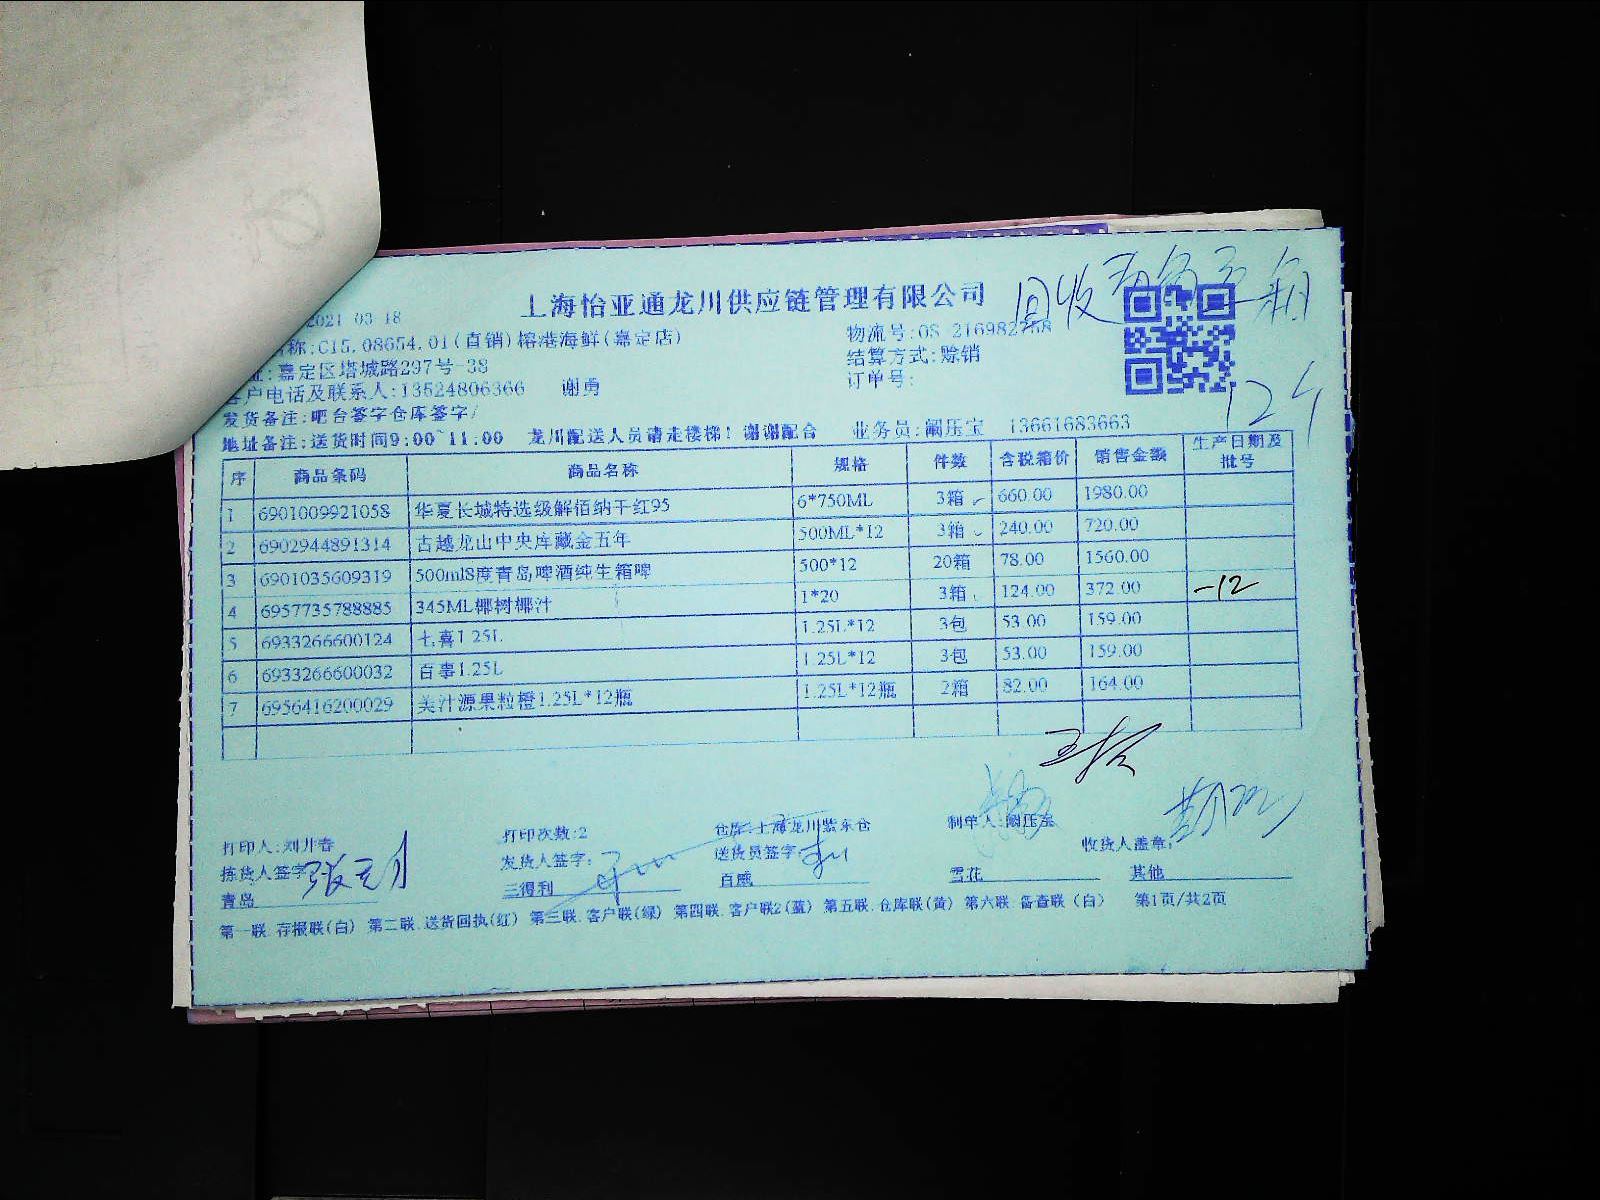 上海怡亚通龙川供应链管理有限公司
回收
2021-03-18
称:C15.08654.01(直销)榕港海鲜(嘉定店)
物流号:OS-21698
址:嘉定区塔城路297号-38
结算方式:赊销
客户电话及联系人:13524806366 谢勇
订单号:
发货备注:吧台签字仓库签字/
124
地址备注:送货时间9:00~11:00 龙川配送人员请走楼梯！谢谢配合 业务员:阚压宝 13661683663
序 商品条码 商品名称 规格 件数 含税箱价 销售金额 生产日期及批号
1 6901009921058 华夏长城特选级解佰纳干红95 6*750ML 3箱 660.00 1980.00
2 6902944891314 古越龙山中央库藏金五年 500ML*12 3箱 240.00 720.00
3 6901035609319 500ml8度青岛啤酒纯生箱啤 500*12 20箱 78.00 1560.00
4 6957735788885 345ML椰树椰汁 1*20 3箱 124.00 372.00 -12
5 6933266600124 七喜1.25L 1.25L*12 3包 53.00 159.00
6 6933266600032 百事1.25L 1.25L*12 3包 53.00 159.00
7 6956416200029 美汁源果粒橙1.25L*12瓶 1.25L*12瓶 2箱 82.00 164.00
打印人:刘升春 打印次数:2 仓库:上海龙川紫东仓 制单人:阚压宝 收货人盖章:
拣货人签字: 发货人签字: 送货员签字:
青岛 三得利 百威 雪花 其他
第一联.存报联(白) 第二联.送货回执(红) 第三联.客户联(绿) 第四联.客户联2(蓝) 第五联.仓库联(黄) 第六联.备查联(白) 第1页/共2页